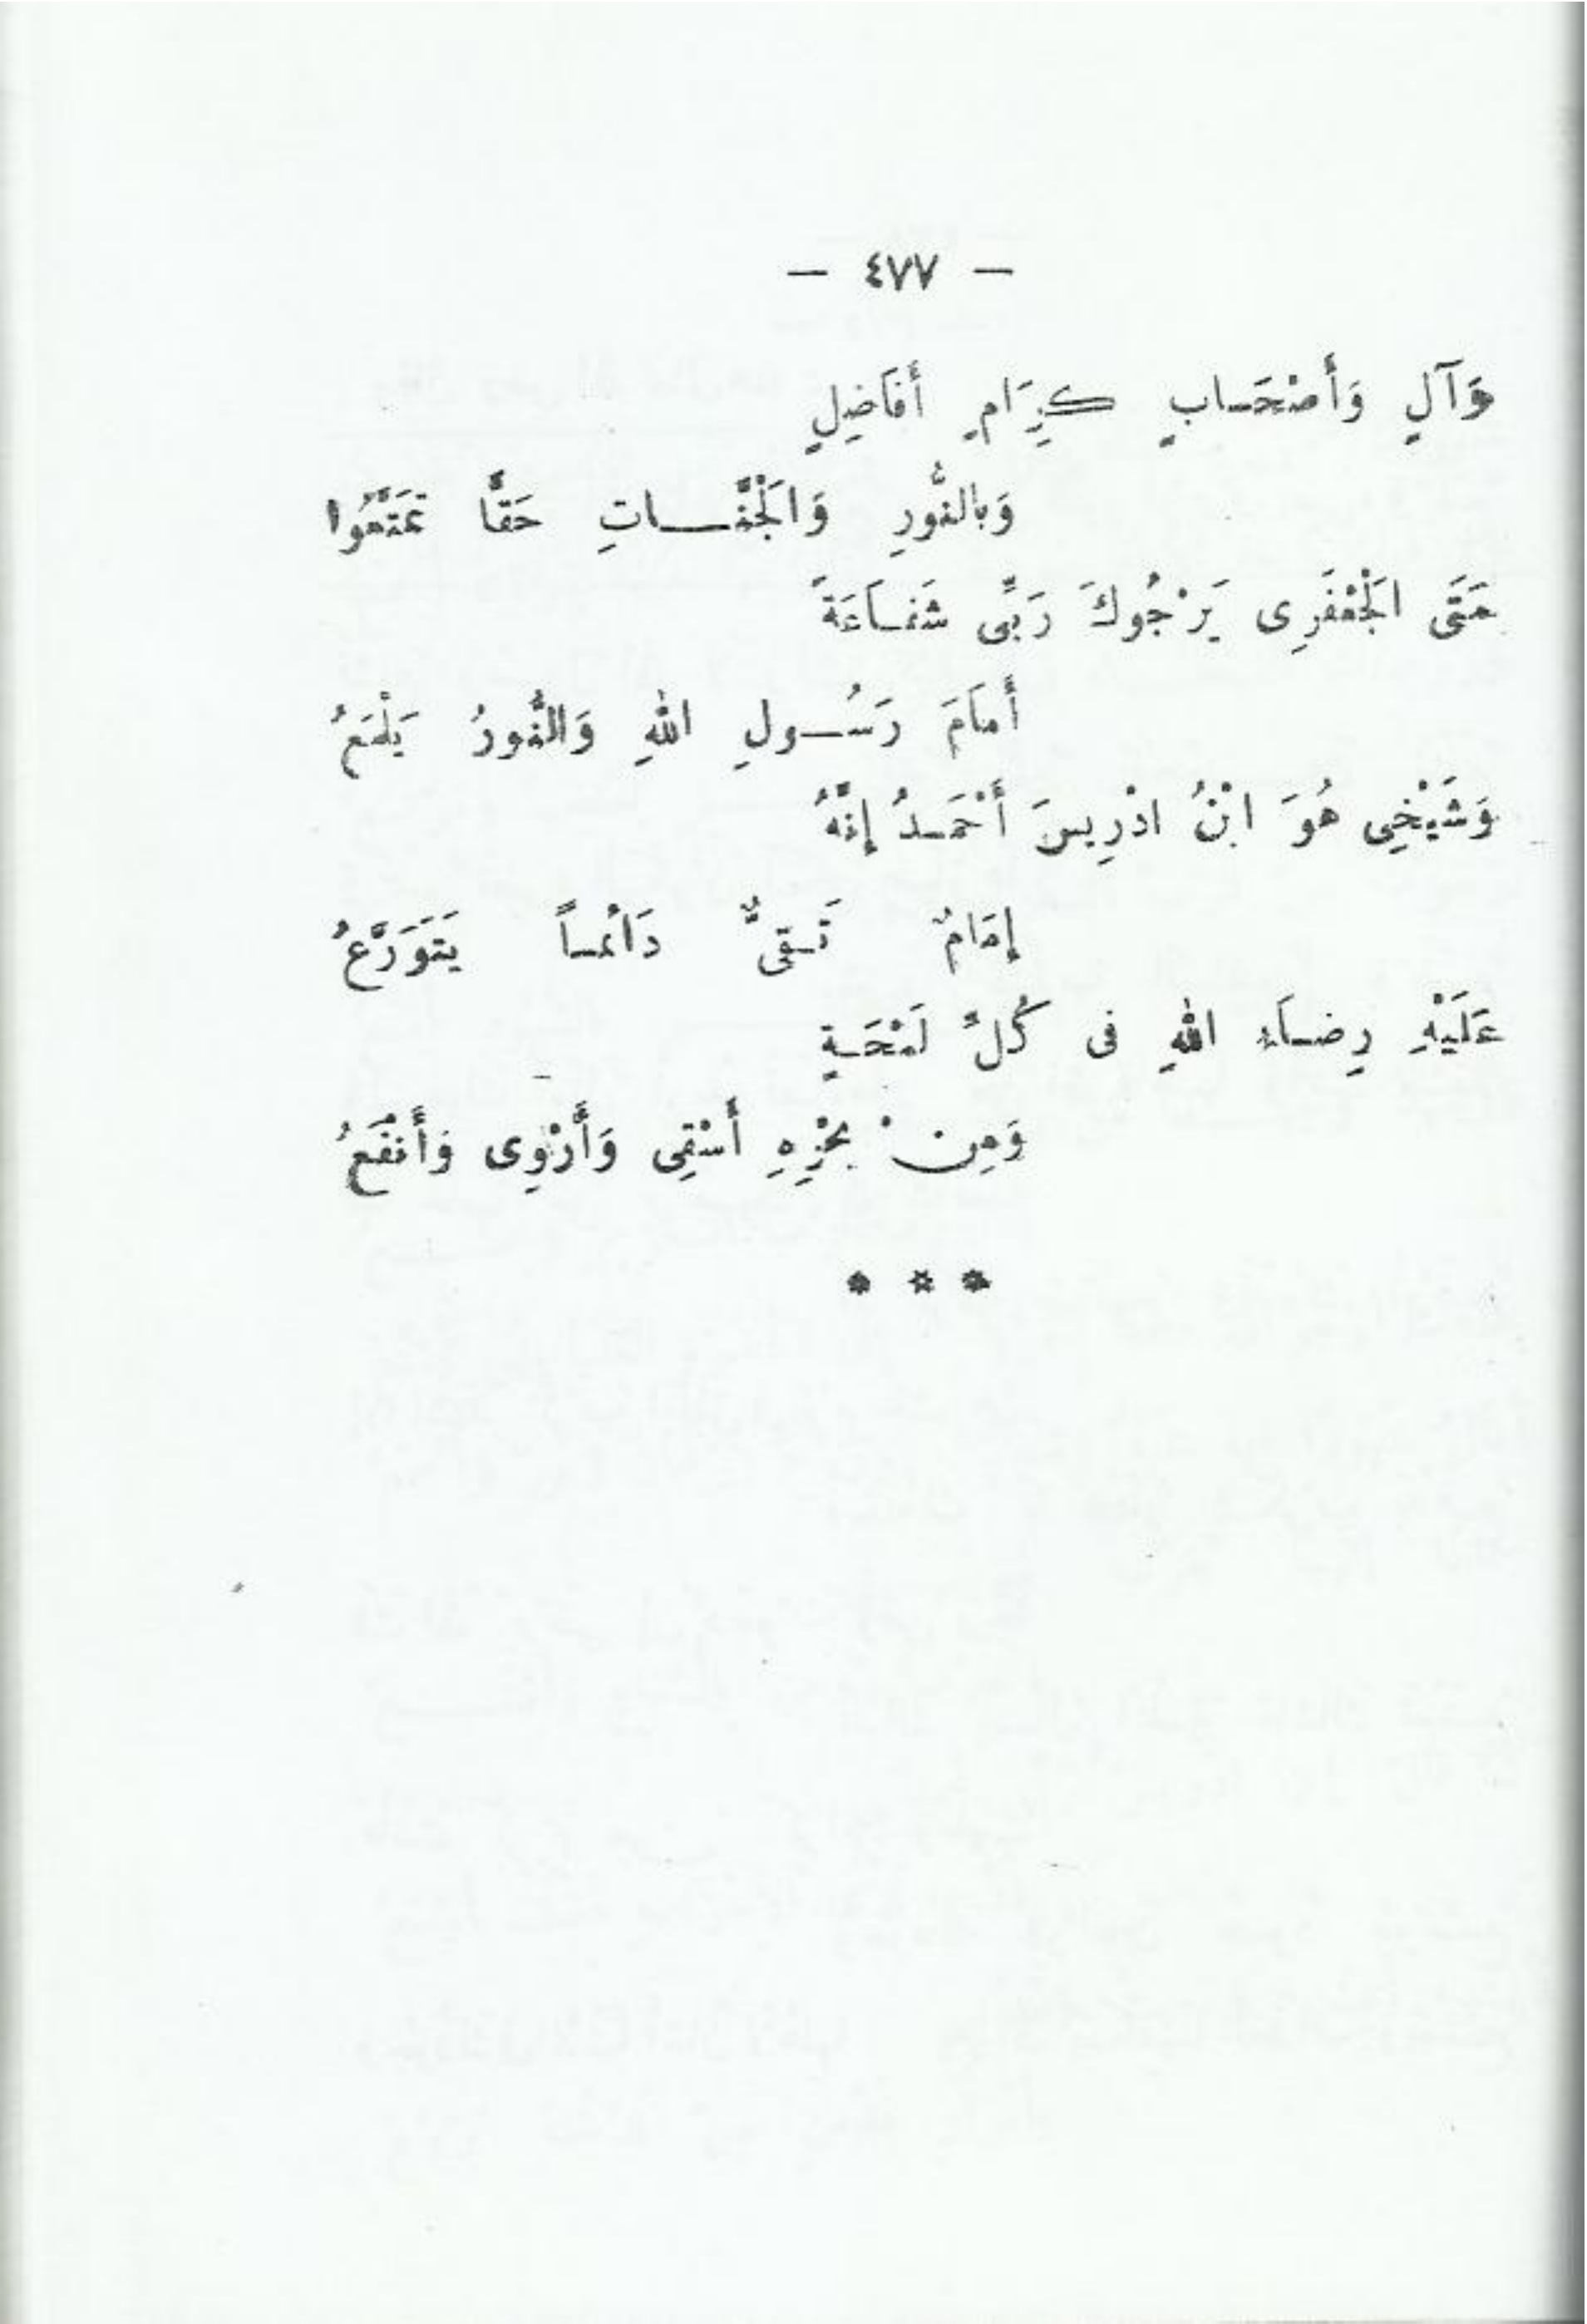 — ٤٧٧ —
وَآلٍ وَأَصْحَابٍ كِرَامٍ أَفَاضِلٍ
وَبِالنُّورِ وَالْجَنَّاتِ حَقًّا تَمَتَّعُوا
مَتَى الْجَعْفَرِى يَرْجُوكَ رَبِّى شَفَاعَةً
أَمَامَ رَسُولِ اللهِ وَالنُّورُ يَلْمَعُ
وَشَيْخِى هُوَ ابْنُ ادْرِيسَ أَحْمَدُ إِنَّهُ
إِمَامٌ تَقِىٌّ دَائمًا يَتَوَرَّعُ
عَلَيْهِ رِضَاءُ اللهِ فى كُلِّ لَمْحَةٍ
وَمِنْ بَحْرِهِ أَسْقِى وَأَرْوِى وَأَنْفَعُ
* * *